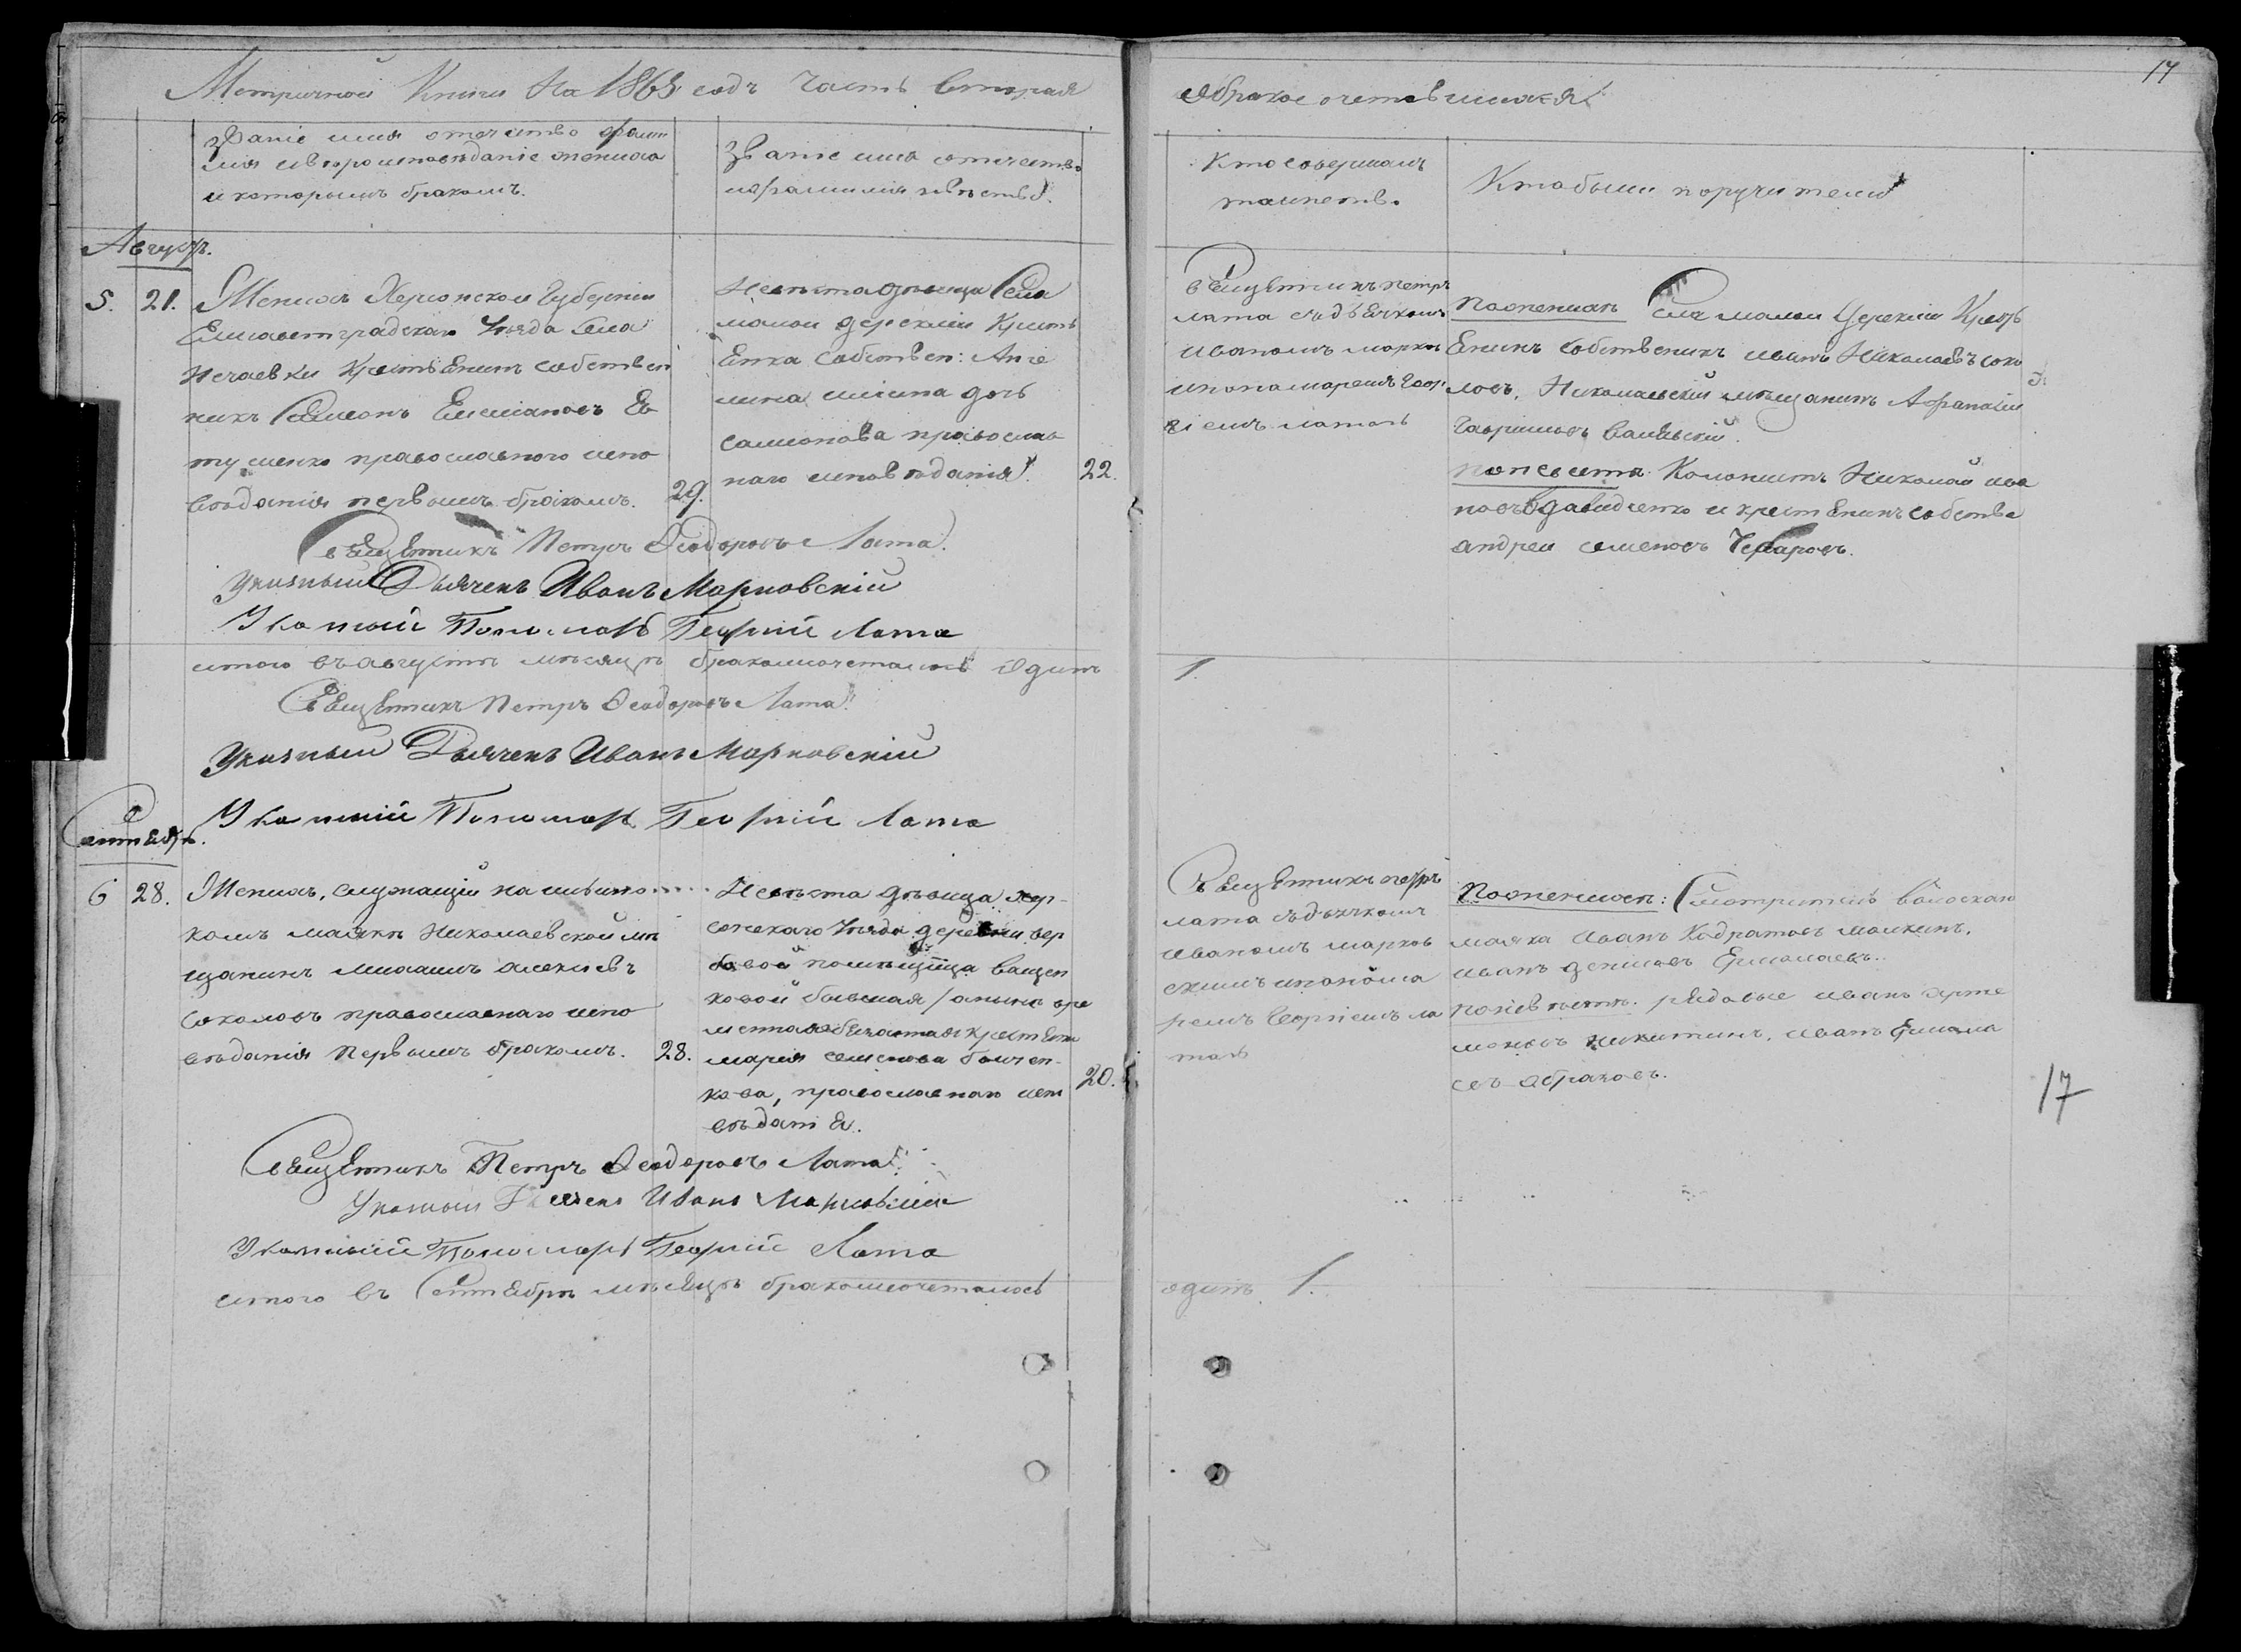 Метричной Книги На 1865 годъ часть вторая
о бракосочетавшихся
17
званіе имя отечество фами
лія и вероисповѣданіе жениха
и которымъ бракомъ.
Званіе имя отечество
и фамилія невѣсты.
Кто совершалъ
таинство.
Кто были поручители
Августъ.
5. 21.
Женихъ Херсонской Губерніи
Елисаветградскаго Уѣзда Села
Нечаевки Крестьенинъ собствен
никъ Самсонъ Емиліановъ Ев
тушенко православнаго испо
вѣданія первымъ бракомъ.
29.
Невѣста дѣвица Села
малой дерекліи Кресть
Енка собствен: Анге
лина дочь
самсонова православ
наго исповѣданія.
22.
священникъ петръ
лата съ дьячкомъ
Иваномъ марков
и пономаремъ Геор
гіемъ латою
По женихѣ Села малой Дерекліи Кресть
Енинъ собственикъ иванъ Николаевъ соко
ловъ, Николаевскій мѣщанинъ Афанасій
Гавриловъ
по невѣстѣ Колонистъ Николай ива
новъ давидченко и крестЕнинъ собстве
андрей семеновъ
Священникъ Петръ Феодоровъ Лата.
Указный Дьячекъ Иванъ Марковскій
Указный Пономарь Георгій Лата
итого въ августѣ мѣсяцѣ бракосочеталось один
1.
СвящЕнникъ Петръ Феодоровъ Лата.
Указный Дьячекъ Иванъ Марковскій
Указный Пономарь Георгій Лата
СентЕбрь.
6 28.
Женихъ, служащій на
комъ маякѣ Николаевской мѣ
щанинъ михаилъ алексѣевъ
Соколовъ православнаго испо
вѣданія первымъ бракомъ.
28.
Невѣста дѣвица Хер-
сонскаго Уѣзда деревни вер
бовой помѣщица ващен
ковой бывшая / а нынѣ вре
менно обязаная крестЕнк
марія семенова
кова, православнаго испо
вѣданіЕ.
20.
СвящЕнникъ петръ
лата съ дьячкомъ
Иваномъ марков
скимъ и понома
ремъ Георгіемъ ла
тою
По женихѣ: Смотритель
маяка Иванъ Кодратовъ малкинъ,
иванъ денисовъ Ермолаевъ.
по невѣстѣ. рядовые иванъ арте
моновъ никитинъ, иванъ Ермола
евъ абрамовъ.
17
СвящЕнникъ Петръ Феодоровъ Лата.
Указный Дьячекъ Иванъ Марковскій
Указный Пономарь Георгій Лата
итого въ СентЕбрѣ мѣсЕцѣ бракосочеталось
одинъ 1.